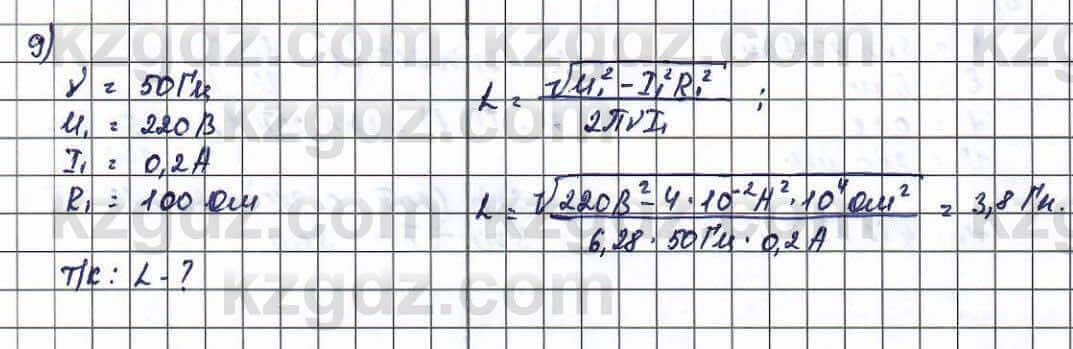 9)
ν = 50 Гц
U₁ = 220 В
I₁ = 0,2 А
R₁ = 100 Ом
Т/к: L - ?
L = √(U₁² - I₁²R₁²) / 2πνI₁ ;
L = √(220В² - 4 · 10⁻² А² · 10⁴ Ом²) / (6,28 · 50Гц · 0,2 А) = 3,8 Гн.
kzgdz.com kzgdz.com
kzgdz.com kzgdz.com
kzgdz.com kzgdz.com
kzgdz.com kzgdz.com